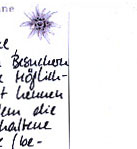 ne
e,
n Besuchern
e Möglich-
t kennen
dem die
haltene
e (be-